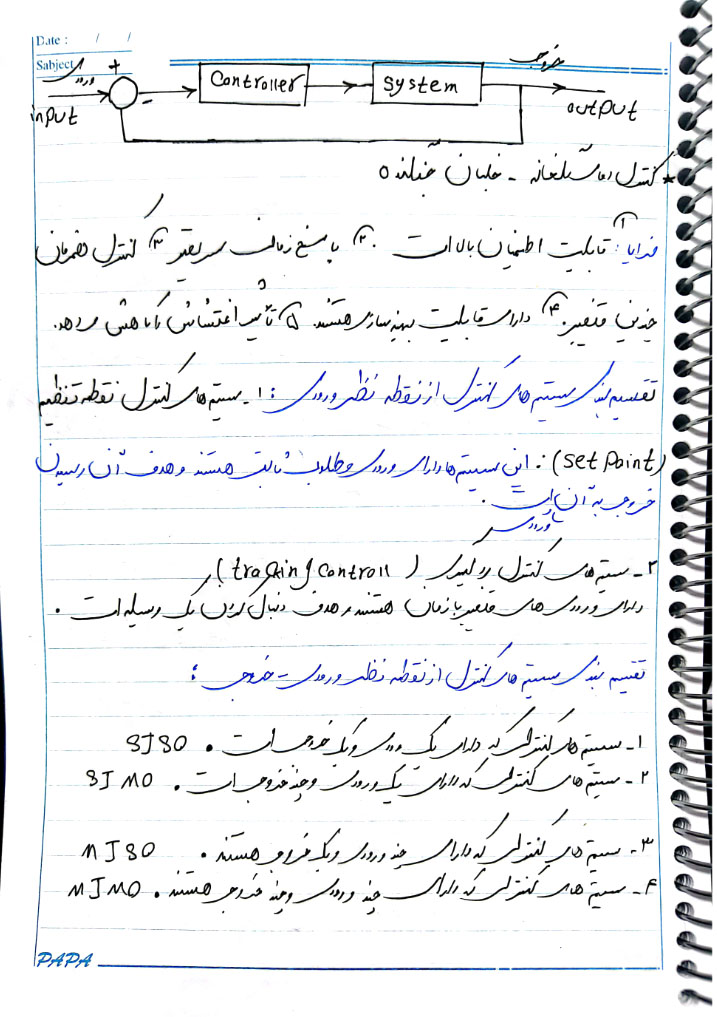 Date : / /
Sabject:
ورودی + Controller System خروجی
input - output
* کنترل های
مزایا: ۱ قابلیت اطمینان بالا است ۲. پاسخ زمانی سریعتر ۳ کنترل همزمان
چندین متغیر. ۴ دارای قابلیت بهینه سازی هستند. ۵ تأثیر اغتشاش را کاهش می دهد.
تقسیم بندی سیستم های کنترل از نقطه نظر ورودی : ۱ـ سیستم های کنترل نقطه تنظیم
(set point) : این سیستم ها دارای ورودی مطلوب ثابت هستند و هدف آن رسیدن
خروجی به آن است.
ورودی
۲ـ سیستم های کنترل ردگیری (tracking controll)
دارای ورودی های متغیر با زمان هستند و هدف دنبال کردن یک وسیله است .
تقسیم بندی سیستم های کنترل از نقطه نظر ورودی - خروجی :
۱ـ سیستم های کنترلی که دارای یک ورودی و یک خروجی است . SISO
۲ـ سیستم های کنترلی که دارای یک ورودی و چند خروجی است . SIMO
۳ـ سیستم های کنترلی که دارای چند ورودی و یک خروجی هستند . MISO
۴ـ سیستم های کنترلی که دارای چند ورودی و چند خروجی هستند . MIMO
PAPA